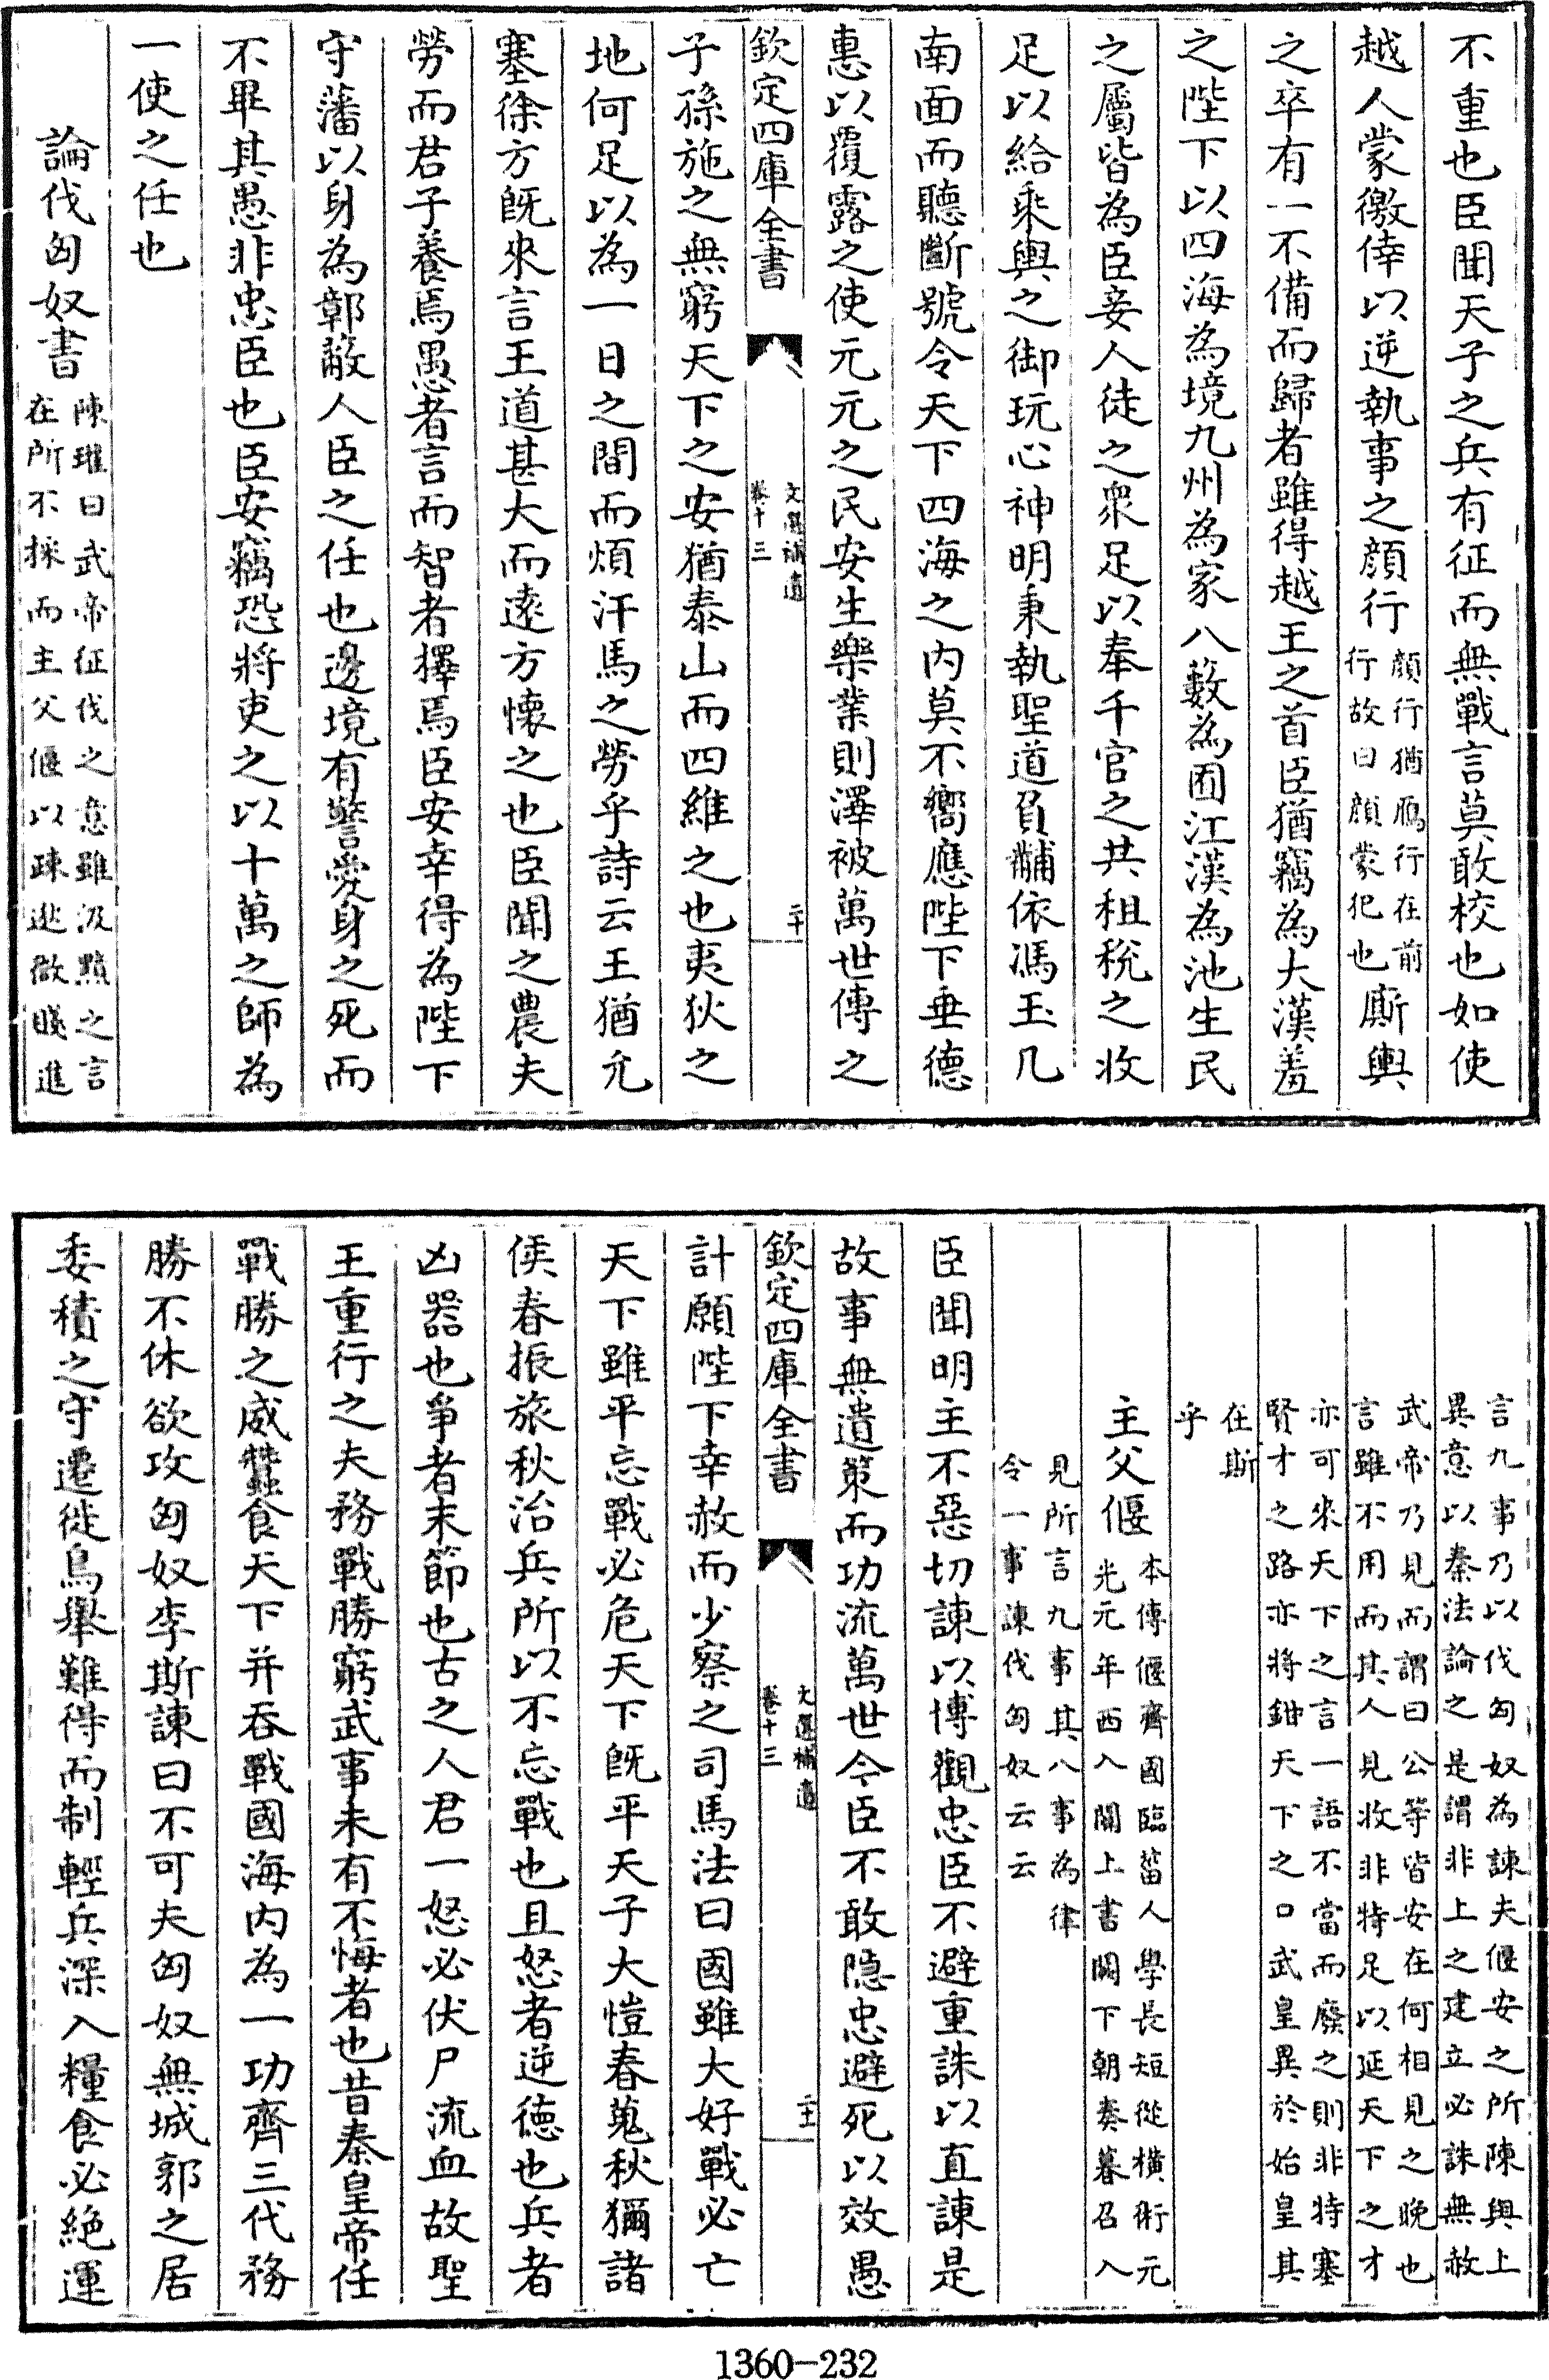 不重也臣聞天子之兵有征而無戰言莫敢校也如使
越人蒙徼倖以逆執事之顔行顔行猶鴈行在前行故曰顔蒙犯也厮輿
之卒有一不備而歸者雖得越王之首臣猶竊為大漢羞
之陛下以四海為境九州為家八藪為囿江漢為池生民
之屬皆為臣妾人徒之衆足以奉千官之共租税之收
足以給乘輿之御玩心神明秉執聖道負黼依馮玉几
南面而聽斷號令天下四海之内莫不嚮應陛下垂德
惠以覆露之使元元之民安生樂業則澤被萬世傳之
欽定四庫全書
文選補遺
卷十三
二十
子孫施之無窮天下之安猶泰山而四維之也夷狄之
地何足以為一日之間而煩汗馬之勞乎詩云王猶允
塞徐方既來言王道甚大而遠方懷之也臣聞之農夫
勞而君子養焉愚者言而智者擇焉臣安幸得為陛下
守藩以身為鄣蔽人臣之任也邊境有警愛身之死而
不畢其愚非忠臣也臣安竊恐將吏之以十萬之師為
一使之任也
論伐匈奴書陳瓘曰武帝征伐之意雖汲黯之言在所不採而主父偃以疎逖微賤進
言九事乃以伐匈奴為諫夫偃安之所陳與上
異意以秦法論之是謂非上之建立必誅無赦
武帝乃見而謂曰公等皆安在何相見之晚也
言雖不用而其人見收非特足以延天下之才
亦可來天下之言一語不當而廢之則非特塞
賢才之路亦將鉗天下之口武皇異於始皇其
在斯
乎
主父偃本傳偃齊國臨菑人學長短從横術元光元年西入關上書闕下朝奏暮召入
見所言九事其八事為律
令一事諫伐匈奴云云
臣聞明主不惡切諫以博觀忠臣不避重誅以直諫是
故事無遺策而功流萬世今臣不敢隐忠避死以效愚
欽定四庫全書
文選補遺
卷十三
二十一
計願陛下幸赦而少察之司馬法曰國雖大好戰必亡
天下雖平忘戰必危天下既平天子大愷春蒐秋獮諸
侯春振旅秋治兵所以不忘戰也且怒者逆德也兵者
凶器也爭者末節也古之人君一怒必伏尸流血故聖
王重行之夫務戰勝窮武事未有不悔者也昔秦皇帝任
戰勝之威蠶食天下并吞戰國海内為一功齊三代務
勝不休欲攻匈奴李斯諫曰不可夫匈奴無城郭之居
委積之守遷徙鳥舉難得而制輕兵深入糧食必絶運
1360-232